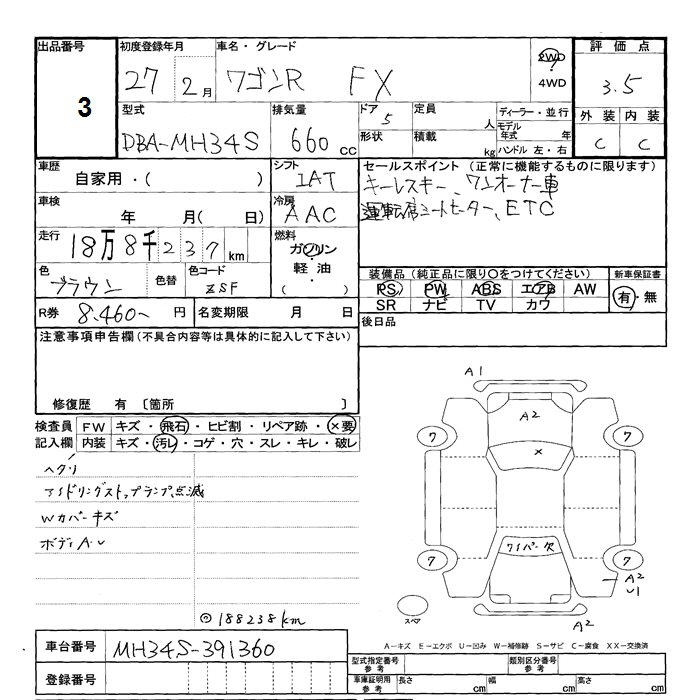 出品番号 初度登録年月 車名・グレード 評価点
3 27 2月 ワゴンR FX 2WD 4WD 3.5
型式 排気量 ドア 定員 ディーラー・並行 外装 内装
DBA-MH34S 660 cc 5 人 モデル年式 年 C C
形状 積載 kg ハンドル 左・右
車歴 シフト セールスポイント (正常に機能するものに限ります)
自家用・( ) IAT キーレスキー、ワンオーナー車
車検 冷房 運転席シートヒーター、ETC
年 月( 日) AAC
走行 燃料
18万8千237km ガソリン・軽油・( )
色 色替 色コード 装備品 (純正品に限り○をつけてください) 新車保証書
ブラウン ZSF PS PW ABS エアB AW 有・無
SR ナビ TV カワ
R券 8.460- 円 名変期限 月 日 後日品
注意事項申告欄(不具合内容等は具体的に記入して下さい)
修復歴 有 〔箇所 〕
検査員 FW キズ・飛石・ヒビ割・リペア跡・×要
記入欄 内装 キズ・汚レ・コゲ・穴・スレ・キレ・破レ
ヘタリ
アイドリングストップランプ点滅
Wカバーキズ
ボディA.U
◎188238km
A1
A2
7 × 7
ワイパー欠
7 7
A2
U1
スペア A2
A-キズ E-エクボ U-凹み W-補修跡 S-サビ C-腐食 XX-交換済
車台番号 MH34S-391360
型式指定番号 参考 類別区分番号 参考
登録番号 車庫証明用 参考 長さ cm 幅 cm 高さ cm